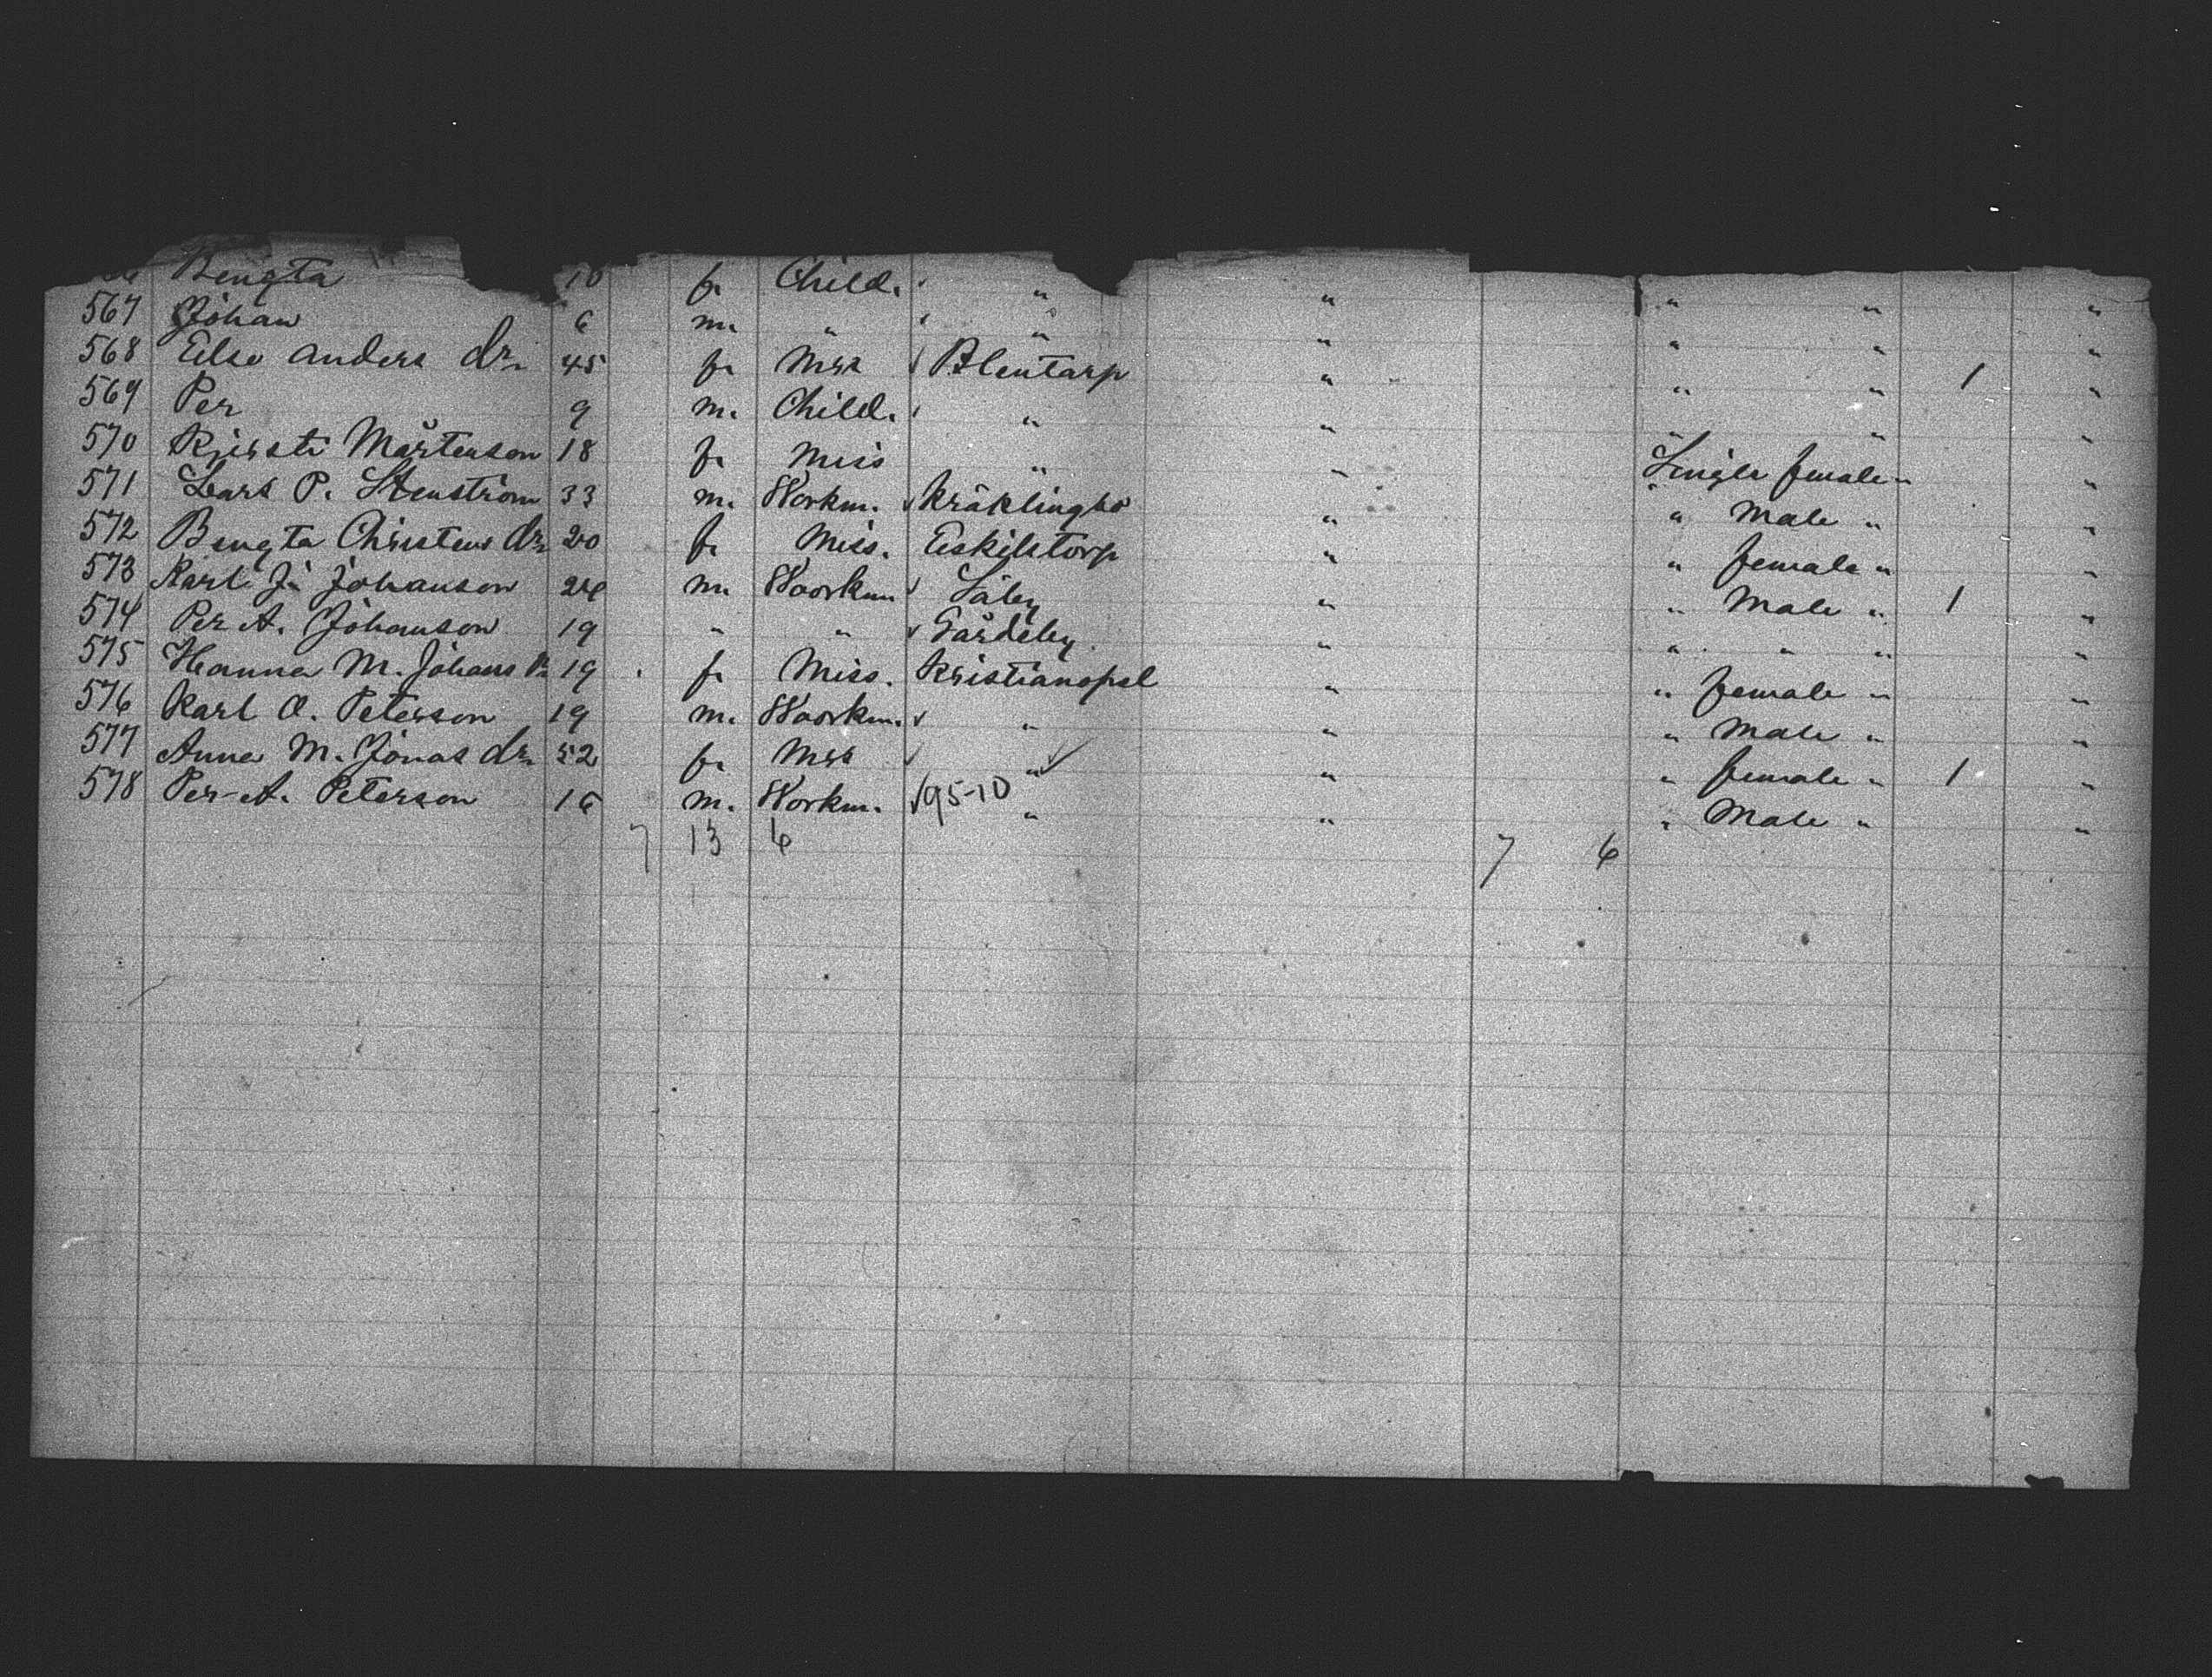 Bengta 10 f. Child. " " " " "
567 Johan 6 m. " " " " " "
568 Else Anders dr. 45 f. Mrs Blentarp " " " 1 "
569 Per 9 m. Child. " " " " "
570 Kjersti Mårtenson 18 f. Miss " " Single female " "
571 Lars P. Stenström 33 m. Workm. Kräklingbo " " Male " "
572 Bengta Christens dr. 20 f. Miss. Eskilstorp " " female " "
573 Karl J. Johanson 24 m. Woorkm Säby " " Male " 1 "
574 Per A. Johanson 19 " " Gårdeby " " " " "
575 Hanna M. Johans D. 19 f. Miss. Kristianopel " " female " "
576 Karl O. Peterson 19 m. Woorkm. " " " Male " "
577 Anna M. Jonas dr. 52 f. Mrs " " " female " 1 "
578 Per A. Peterson 16 m. Workm. 95-10 " " " Male " "
7 13 6 7 6